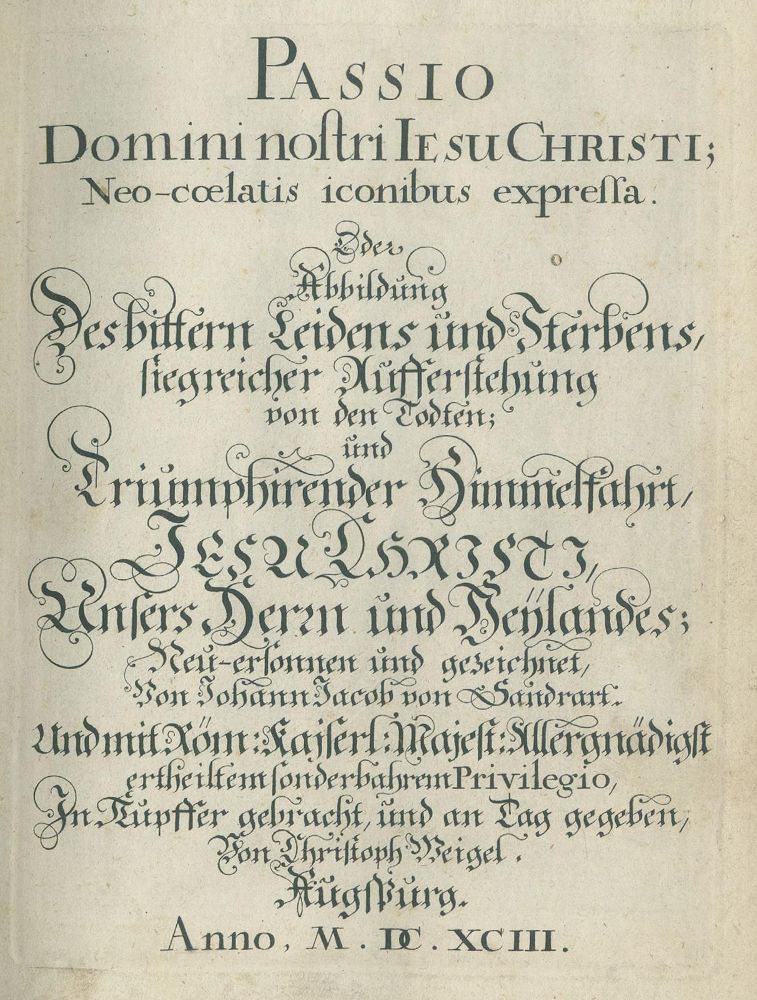 PASSIO
Domini noſtri IESU CHRISTI;
Neo-cœlatis iconibus expreſſa.
Oder
Abbildung
Des bittern Leidens und Sterbens,
ſiegreicher Aufferſtehung
von den Todten;
und
Triumphirender Himmelfahrt,
JESU CHRISTI,
Unſers Herrn und Heÿlandes;
Neu-erſonnen und gezeichnet,
Von Johann Jacob von Sandrart.
Und mit Röm: Kaÿſerl: Majeſt: Allergnädigſt
ertheiltem ſonderbahrem Privilegio,
In Kupffer gebracht, und an Tag gegeben,
Von Chriſtoph Weigel.
Augſpurg.
Anno, M. DC. XCIII.